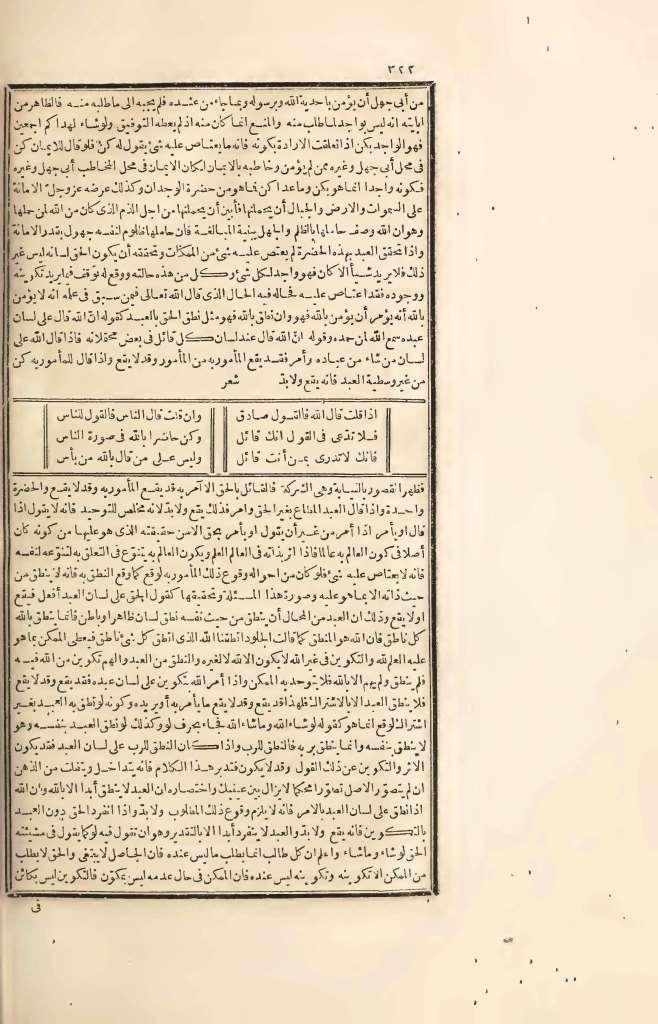 ٣٢٢
من أبى جهل أن يؤمن باحدية الله وبرسوله وبما جاء من عنده فلم يجبه الى ما طلبه منه فالظاهر من
ايابته انه ليس بواجد لما طلب منه والمنع انما كان منه اذ لم يعطه التوفيق ولو شاء لهداكم اجمعين
فهو الواجد بكن اذا تعلقت الارادة بكونه فانه ما يعتاص عليه شئ يقول له كن فلو قال للايمان كن
فى محل أبى جهل وغيره ممن لم يؤمن وخاطبه بالايمان لكان الايمان فى محل المخاطب أبى جهل وغيره
فكونه واجدا انما هو بكن وما عدا كن فما هو من حضرة الوجدان وكذلك عرضه عز وجل الامانة
على السموات والارض والجبال أن يحملنها فأبين أن يحملنها من اجل الذم الذى كان من الله لمن حملها
وهو ان الله وصف حاملها بالظلم والجهل ببنية المبالغة فان حاملها ظلوم لنفسه جهول بقدر الامانة
واذا تحقق العبد بهذه الحضرة لم يعتص عليه شئ من الممكنات وتحققه أن يكون الحق لسانه ليس غير
ذلك فلا يريد شيأ الا كان فهو واجد لكل شئ وكل من هذه حالته ووقع له توقف فيما يريد تكوينه
ووجوده فقد اعتاص عليه فحاله فيه الحال الذى قال الله تعالى فيمن سبق فى علمه انه لا يؤمن
بالله أنه يؤمر أن يؤمن بالله فهو وان نطق بالله فهو مثل نطق الحق بالعبد كقوله ان الله قال على لسان
عبده سمع الله لمن حمده وقوله ان الله قال عند لسان كل قائل فى بعض محتملاته فاذا قال الله على
لسان من شاء من عباده وأمر فقد يقع المأمور به من المأمور وقد لا يقع واذا قال للمأمور به كن
من غير وسطية العبد فانه يقع ولابد شعر
اذا قلت قال الله فالقول صادق وان قلت قال الناس فالقول للناس
فلا تدعى فى القول انك قائل وكن حاضرا بالله فى صورة الناس
فانك لا تدرى بمن أنت قائل وليس على من قال بالله من بأس
فظهر القصور بالنيابة وهى الشركة فالقائل بالحق الآمر به قد يقع المأمور به وقد لا يقع والحضرة
واحدة واذا قال العبد المتاع بغير الحق وامر فذلك يقع ولابد لانه مخلص للتوحيد فانه لا يقول اذا
قال او يأمر اذا أمر من غير أن يقول او يأمر بحق الا من حقيقته الذى هو عليها من كونه كان
أصلا فى كون العالم به عالما فاذا اثر بذاته فى العالم العلم ويكون العالم به يتنوع فى التعلق به لتنوعه لنفسه
فانه لا يعتاص عليه شئ فلو كان من احواله وقوع ذلك المأمور به لوقع كما وقع النطق به فانه لا ينطق من
حيث ذاته الا بما هو عليه وصورة هذا المسئلة وتحقيقها كقول الحق على لسان العبد أفعل فيقع
او لا يقع وذلك ان العبد من المحال أن ينطق من حيث نفسه نطق لسان ظاهر او باطن فانما ينطق بالله
كل ناطق فان الله هو المنطق كما قالت الجلود انطقنا الله الذى انطق كل شئ ناطق فيعطى الممكن بما هو
عليه العلم لله والتكوين فى غير الله لا يكون الا لله لا لغيره والنطق من العبد والهم تكوين من الله فيه
فلم ينطق ولم يهم الا بالله فلا يتوحد به الممكن واذا أمر الله بتكوين على لسان عبده فقد يقع وقد لا يقع
فلا ينطق العبد الا بالاشتراك فلهذا قد يقع وقد لا يقع ما يأمر به أو يريده وكونه لو نطق به العبد بغير
اشتراك لوقع انما هو كقوله لو شاء الله وما شاء الله فجاء بحرف لو وكذلك لو نطق العبد بنفسه وهو
لا ينطق بنفسه وانما ينطق بربه فالنطق للرب واذا كان النطق للرب على لسان العبد فقد يكون
الاثر والتكوين عن ذلك القول وقد لا يكون فتدبر هذا الكلام فانه يتداخل وينفلت من الذهن
ان لم يتصور الاصل تصورا محكما لا يزال بين عينيك واختصاره ان العبد لا ينطق أبدا الا بالله وان الله
اذا نطق على لسان العبد بالامر فانه لا يلزم وقوع ذلك المطلوب ولابد واذا انفرد الحق دون العبد
بالتكوين فانه يقع ولابد والعبد لا ينفرد أبدا الا بالتقدير وهو ان تقول فيه لو كما يقول فى مشيئته
الحق لو شاء وما شاء واعلم ان كل طالب انما يطلب ما ليس عنده فان الحاصل لا يبتغى والحق لا يطلب
من الممكن الا تكوينه وتكوينه ليس عنده فان الممكن فى حال عدمه ليس بمكون فالتكوين ليس بكائن
فى